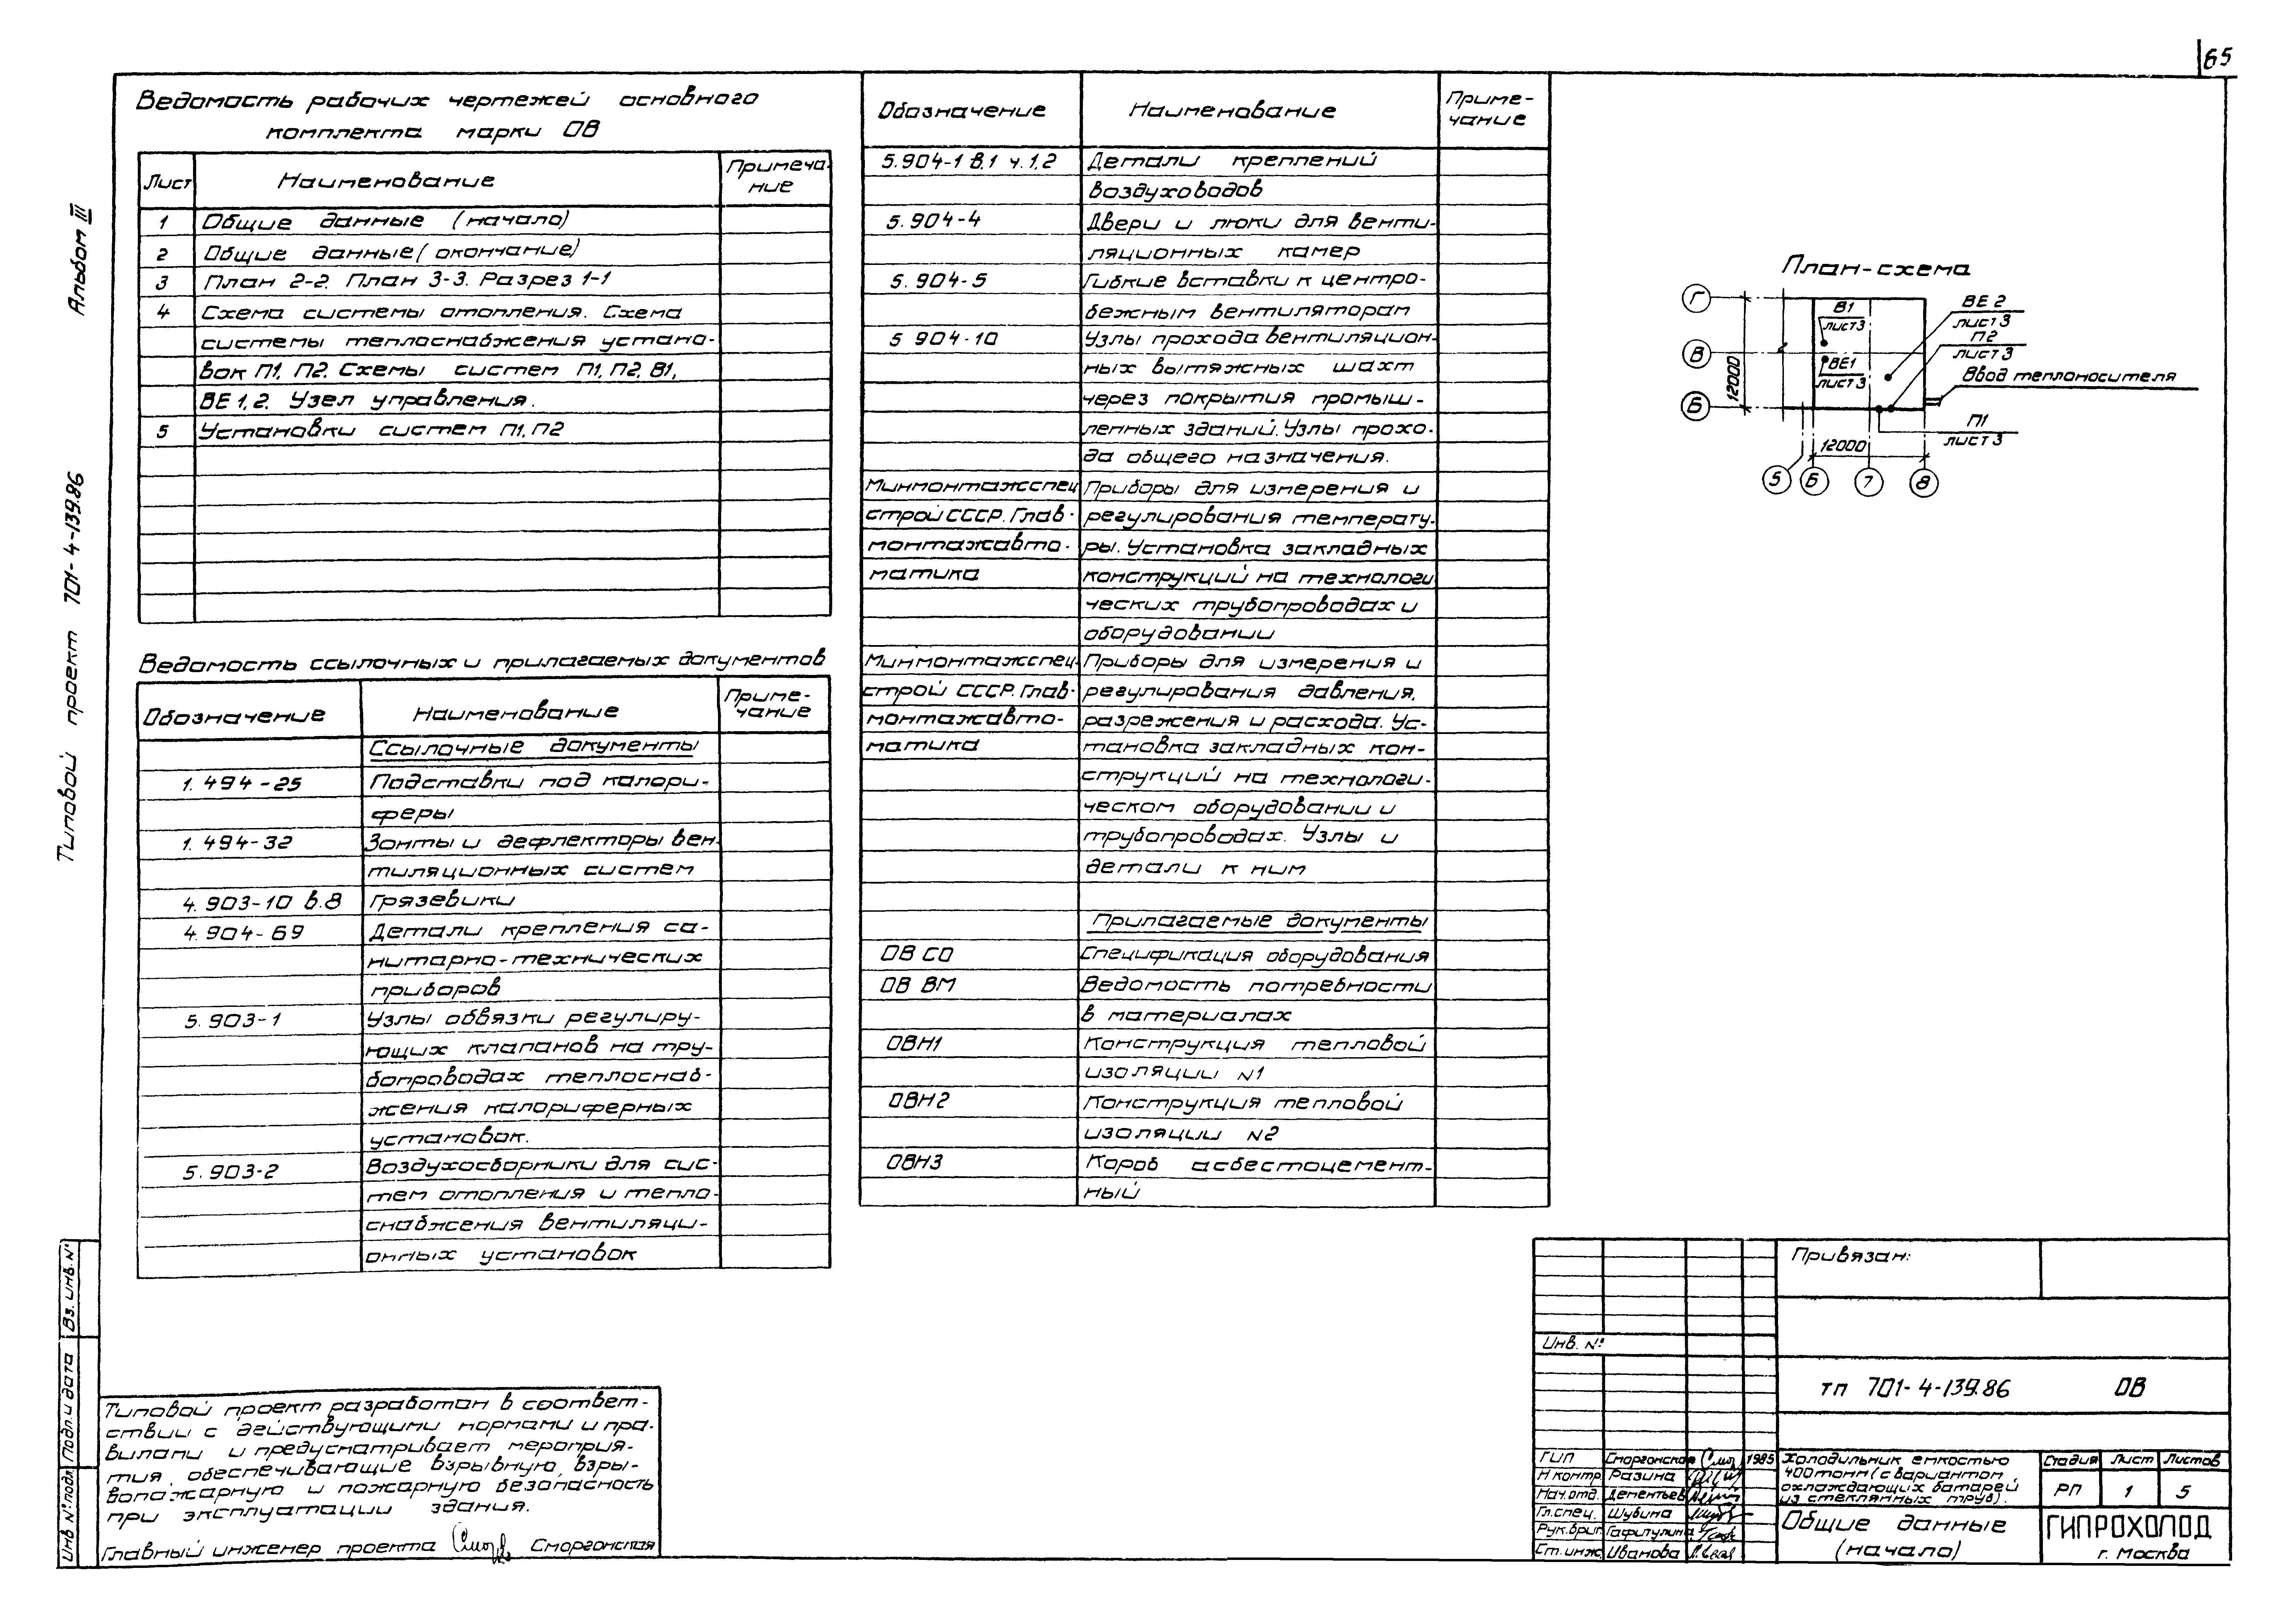 65
Альбом III
Типовой проект 701-4-139.86
Вз. инв. №
Подп. и дата
Инв № подл.
Ведомость рабочих чертежей основного
комплекта марки ОВ
Лист Наименование Примеча-
ние
1 Общие данные (начало)
2 Общие данные (окончание)
3 План 2-2. План 3-3. Разрез 1-1
4 Схема системы отопления. Схема
системы теплоснабжения устано-
вок П1, П2. Схемы систем П1, П2, В1,
ВЕ 1, 2. Узел управления.
5 Установки систем П1, П2
Ведомость ссылочных и прилагаемых документов
Обозначение Наименование Приме-
чание
Ссылочные документы
1. 494-25 Подставки под калори-
феры
1. 494-32 Зонты и дефлекторы вен-
тиляционных систем
4. 903-10 в.8 Грязевики
4. 904-69 Детали крепления са-
нитарно-технических
приборов
5. 903-1 Узлы обвязки регулиру-
ющих клапанов на тру-
бопроводах теплоснаб-
жения калориферных
установок.
5. 903-2 Воздухосборники для сис-
тем отопления и тепло-
снабжения вентиляци-
онных установок
Обозначение Наименование Приме-
чание
5.904-1 в.1 ч.1,2 Детали креплений
воздуховодов
5. 904-4 Двери и люки для венти-
ляционных камер
5. 904-5 Гибкие вставки к центро-
бежным вентиляторам
5 904-10 Узлы прохода вентиляцион-
ных вытяжных шахт
через покрытия промыш-
ленных зданий. Узлы прохо-
да общего назначения.
Минмонтажспец Приборы для измерения и
строй СССР. Глав- регулирования температу-
монтажавто- ры. Установка закладных
матика конструкций на технологи
ческих трубопроводах и
оборудовании
Минмонтажспец- Приборы для измерения и
строй СССР. Глав- регулирования давления,
монтажавто- разрежения и расхода. Ус-
матика тановка закладных кон-
струкций на технологи-
ческом оборудовании и
трубопроводах. Узлы и
детали к ним
Прилагаемые документы
ОВ СО Спецификация оборудования
ОВ ВМ Ведомость потребности
в материалах
ОВН1 Конструкция тепловой
изоляции N1
ОВН2 Конструкция тепловой
изоляции N2
ОВН3 Короб асбестоцемент-
ный
План-схема
Г
В
Б
12000
В1
лист 3
ВЕ1
лист 3
ВЕ 2
лист 3
П2
лист 3
Ввод теплоносителя
П1
лист 3
12000
5 6 7 8
Типовой проект разработан в соответ-
ствии с действующими нормами и пра-
вилами и предусматривает мероприя-
тия, обеспечивающие взрывную, взры-
вопожарную и пожарную безопасность
при эксплуатации здания.
Главный инженер проекта Сморгонская
Привязан:
Инв. №
тп 701-4-139.86 ОВ
ГИП Сморгонская 1985
Н контр. Разина
Нач.отд. Дементьев
Гл.спец. Шубина
Рук.бриг. Гафитулина
Ст.инж. Иванова
Холодильник емкостью
400 тонн (с вариантом
охлаждающих батарей
из стеклянных труб).
Стадия Лист Листов
РП 1 5
Общие данные
(начало)
ГИПРОХОЛОД
г. Москва